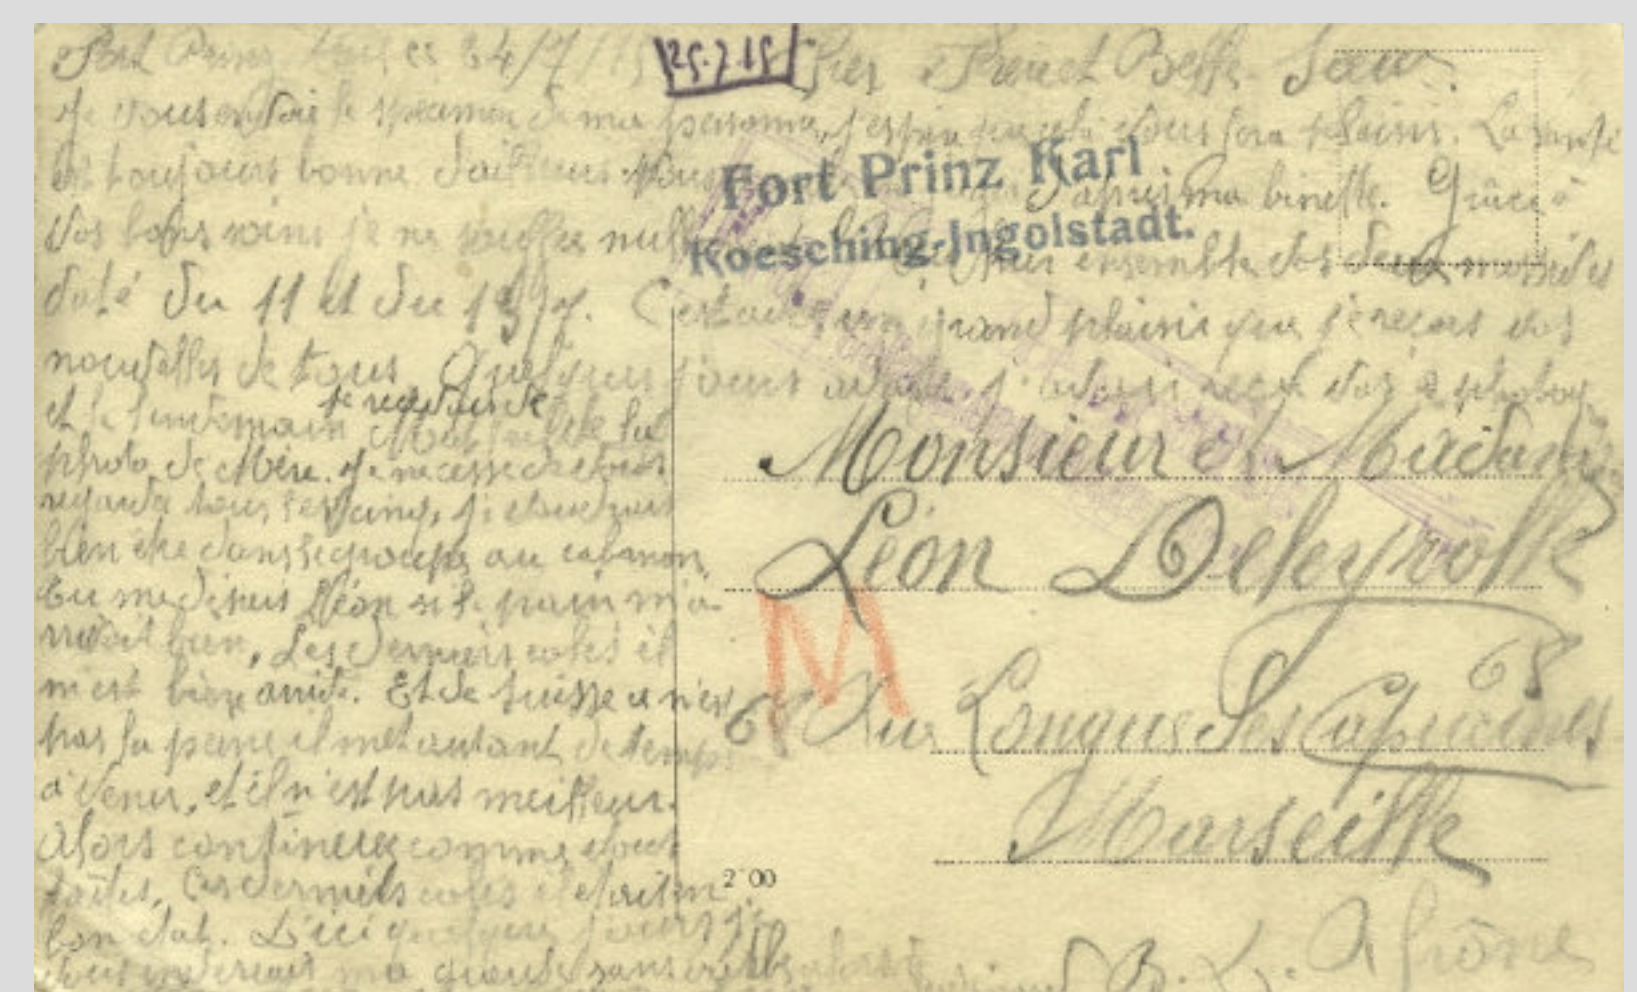 Fort Prinz Karl ce 24/7/15 25.7.15 Cher Frère et Belle Sœur
Je vous envoie le spécimen de ma personne, j'espère que cela vous fera plaisir. La santé
est toujours bonne d'ailleurs vous
Fort Prinz Karl
d'après ma binette. Grâce à
Koesching-Ingolstadt.
vos bons soins je ne souffre
ensemble vos deux
daté du 11 et du 13/7. C'est avec un grand plaisir que je reçois vos
nouvelles de tous. Quelques jours avant j'avais reçu vos photos
et le lendemain je recevais de la
photo de Mère. Je ne cesse de vous
regarder tous les cinq, je voudrais
bien être dans le groupe au cabanon.
Tu me disais Léon si le pain m'a-
rrivait bien. Les derniers colis il
m'est bien arrivé. Et de Suisse ce n'est
pas la peine il met autant de temps
à venir, et il n'est pas meilleur.
Alors continuez comme vous
faites. Ces derniers colis était en
bon état. D'ici quelques jours je
vous enverrais ma gueule sans
Monsieur et Madame
Léon Deleyrolle
M
68
68 Rue Longue des Capucines
Marseille
2 00
B. d. Rhône